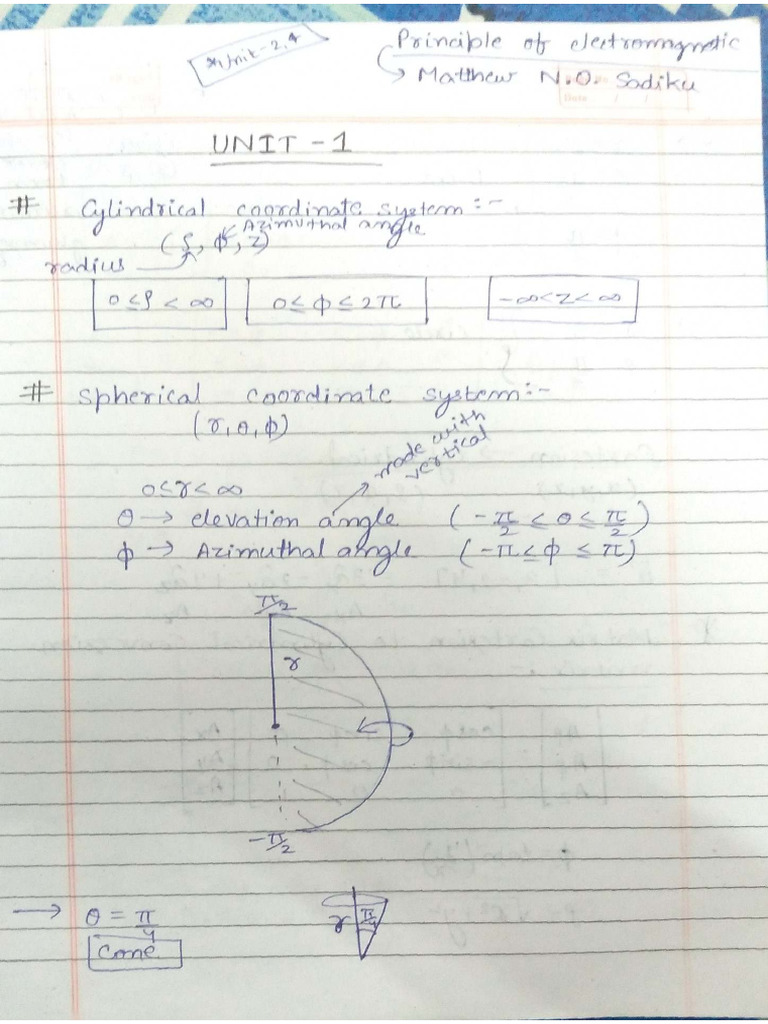 *Unit-2,4
Principle of electromagnetic
→ Matthew N.O. Sadiku
UNIT - 1
# Cylindrical coordinate system :-
Azimuthal angle
(ρ, φ, z)
radius
0 ≤ ρ < ∞ 0 ≤ φ ≤ 2π -∞ < z < ∞
# Spherical coordinate system :-
(r, θ, φ)
made with
vertical
0 ≤ r < ∞
θ → elevation angle (-π/2 ≤ θ ≤ π/2)
φ → Azimuthal angle (-π ≤ φ ≤ π)
π/2
r
-π/2
→ θ = π/4
r π/4
Cone